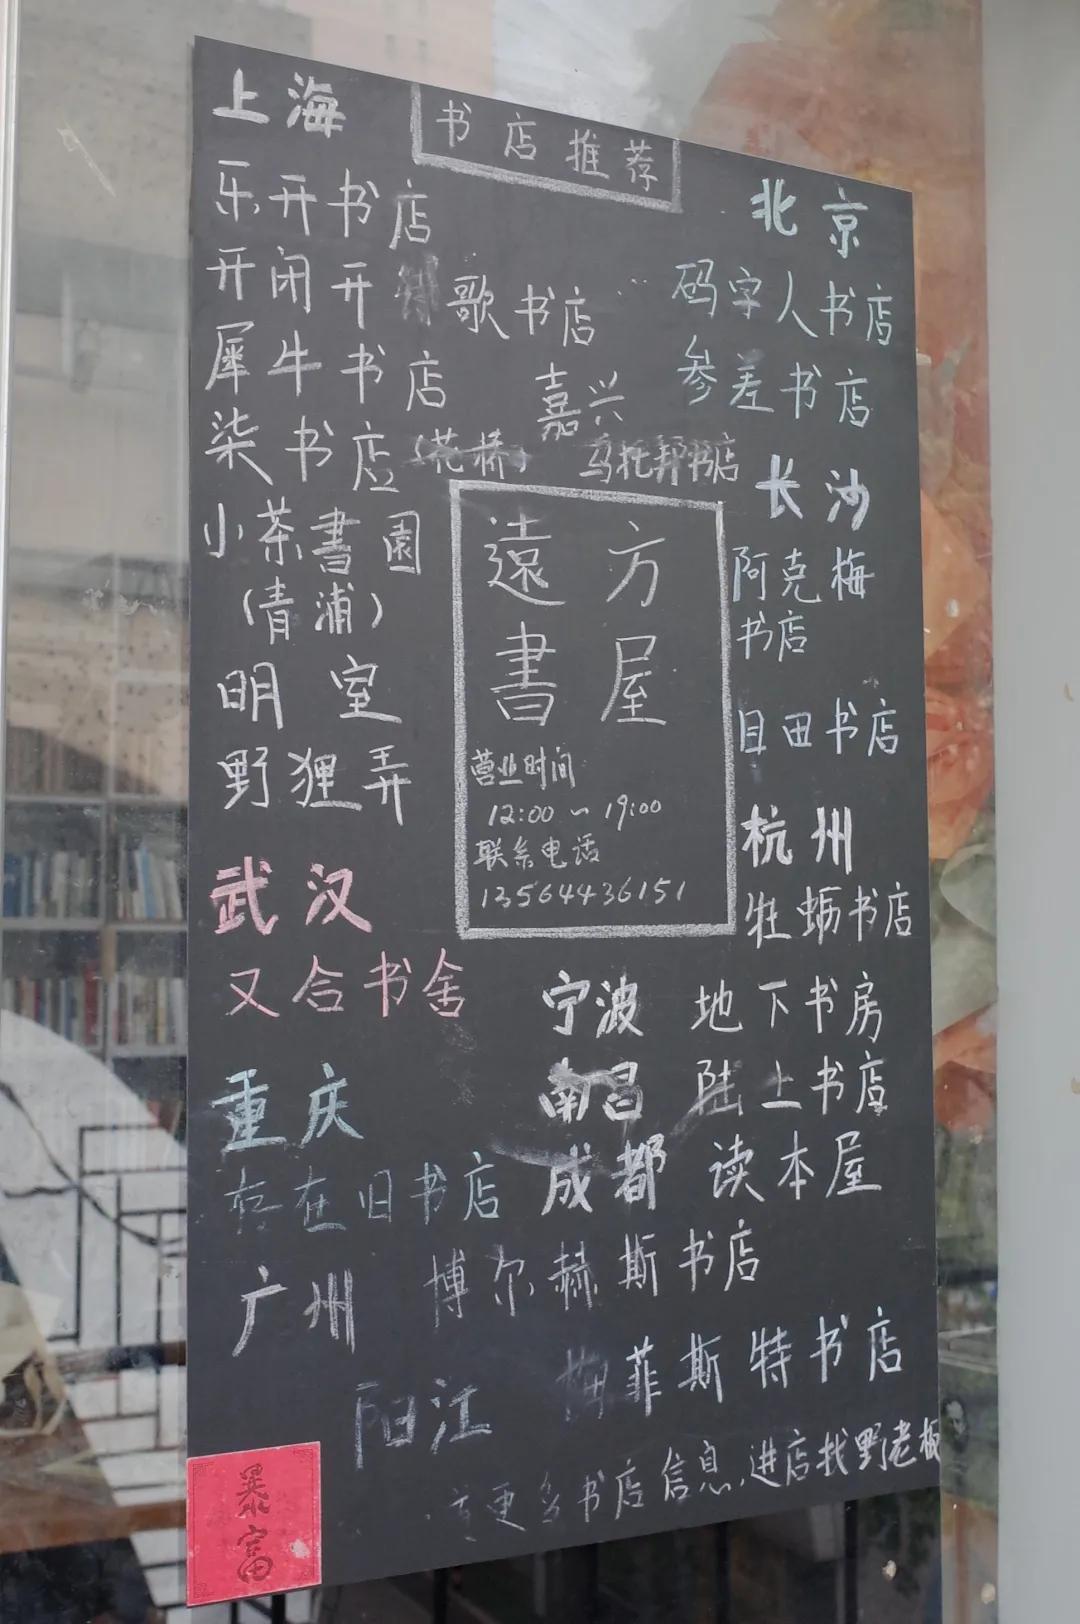 书店推荐
上海
乐开书店
开闭开
歌书店
犀牛书店
柒书店(花桥)
小茶書園
(青浦)
明室
野狸弄
嘉兴
乌托邦书店
北京
码字人书店
参差书店
长沙
阿克梅
书店
目田书店
杭州
牡蛎书店
遠方
書屋
营业时间
12:00~19:00
联系电话
13564436151
武汉
又合书舍
重庆
存在旧书店
宁波 地下书房
南昌 陆上书店
成都 读本屋
广州 博尔赫斯书店
阳江 梅菲斯特书店
更多书店信息,进店找野老板
暴富